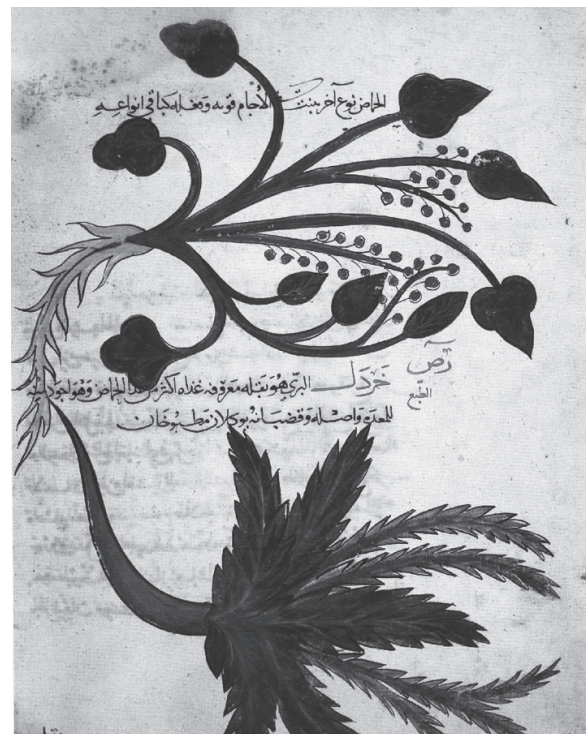 الحماض نوع آخر ينبت الآجام قوته وفعله كباقي انواعه
الطبع
خردل البري هو بقله معروفه غذاه اكثر من غذا الحماض وهو
للمعده واصله وقضبانه يوكلان مطبوخان